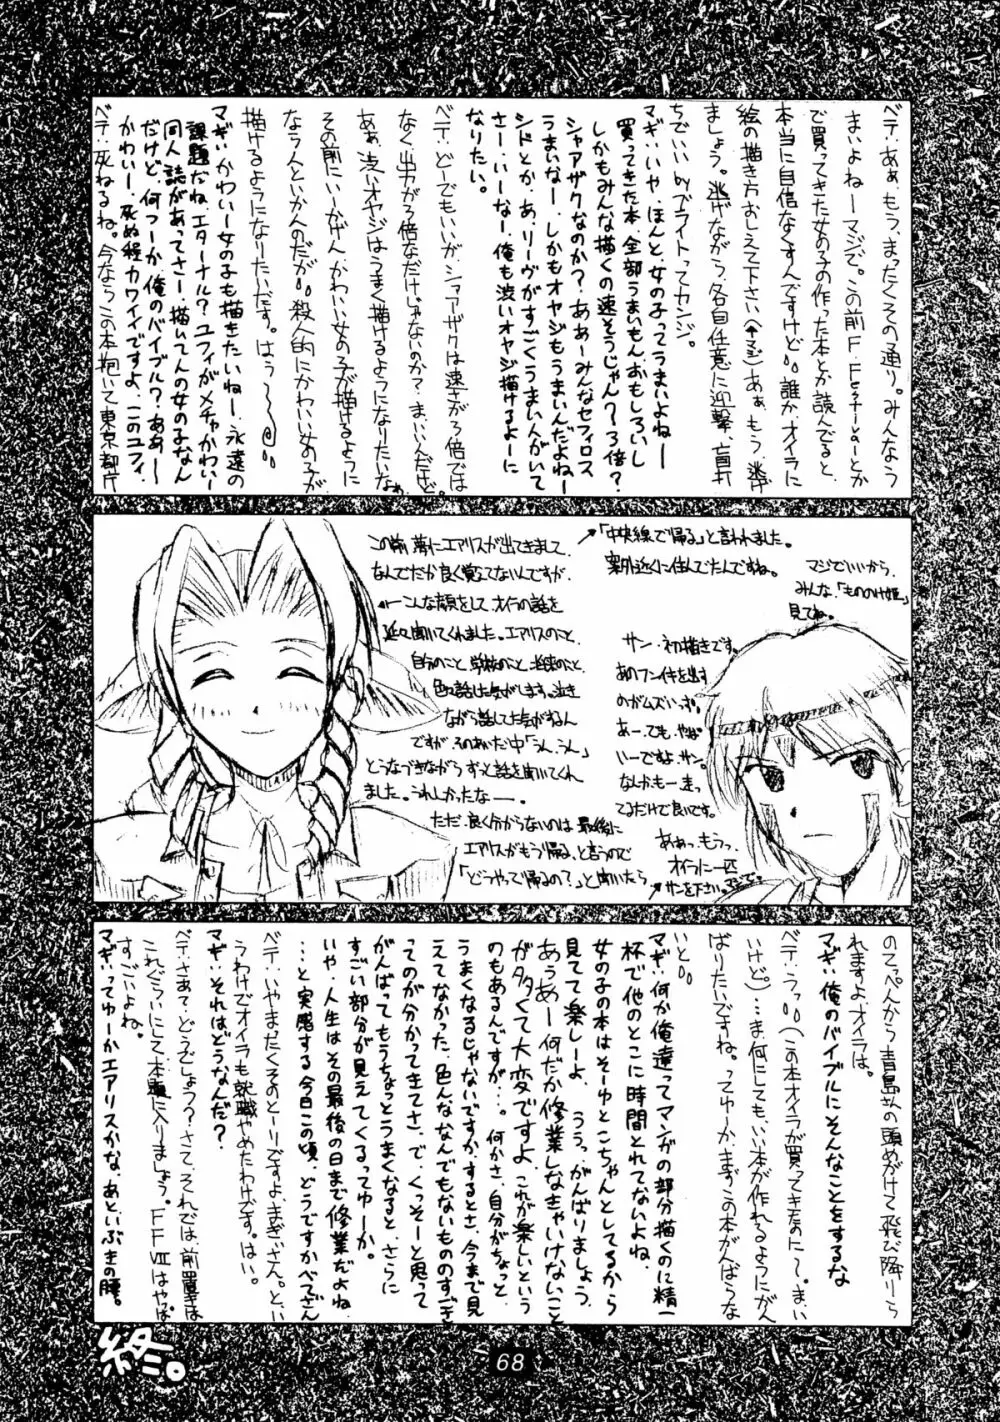 ベテ：あぁ、もう、まったくその通り。みんなう
まいよねーマジで。この前F.Festiaーとか
で買ってきた女の子の作った本とか読んでると、
本当に自信なくすんですけど。。誰かオイラに
絵の描き方おしえて下さい(↑マジ)あぁ、もう、逃げ
ましょう。逃げながら、各自任意に迎撃、盲打
ちでいい byブライトってカンジ。
マギ：いや、ほんと、女の子ってうまいよねー
買ってきた本、全部うまいもんおもしろいし
しかもみんな描くの速そうじゃん～3倍？
シャアザクなのか？ああーみんなセフィロス
うまいなー、しかもオヤジもうまいんだよねー
シドとか、あ、リーヴすごくうまい人がいて
さー、いーなー、俺も渋いオヤジ描けるよーに
なりたい。
ベテ：どーでもいいが、シャアザクは速さが3倍では
なく、出力が3倍なだけじゃないのか？まいいんだけど。
あぁ、渋いオヤジはうまく描けるようになりたいなぁ
その前にいーかげん、かわいい女の子が描けるように
ならんといかんのだが。。殺人的にかわいい女の子が
描けるようになりたいです。はぅ～～
マギ：かわいー女の子も描きたいねー、永遠の
課題だね、エターナル？ユフィがメチャかわいー
同人誌があってさー、描いてんの女の子なん
だけど、何つーか俺のバイブル？ああー
かわいー、死ぬ程カワイイですよ、このユフィ、
ベテ：死ねるね。今ならこの本抱いて東京都庁
この前、夢にエアリスが出てきまして、
なんでだか良く覚えてないんですが、
←こんな顔をして、オイラの話を
延々聞いてくれました。エアリスのこと、
自分のこと、学校のこと、将来のこと、
色々話した気がします。泣き
ながら話してた気がするん
ですが、そのあいだ中「うん、うん」
とうなづきながらずっと話を聞いてくれ
ました。うれしかったなー。
ただ、良く分からないのは、最後に
エアリスがもう帰る、と言うので
「どうやって帰るの？」と聞いたら
「中央線で帰る」と言われました。
案外近くに住んでたんですね。
マジでいいから、
みんな、「もののけ姫」
見てね。
サン・初描きです。
あのフンイキを出す
のがムズいっす。
あー、でも、やっぱ
いーですよ、サン。
なんかも一走っ
てるだけで良いです。
ああっ、もうっ、
オイラに一匹
サンを下さい。マジで。
のてっぺんから青島の頭めがけて飛び降りら
れますよ、オイラは。
マギ：俺のバイブルにそんなことをするな
ベテ：うっ。。(この本オイラが買ってきたのにー、まいい
いけど)…ま何にしても、いい本が作れるようにがん
ばりたいですね。ってゆーか、まずこの本がんばらな
いと。。
マギ：何か俺達ってマンガの部分描くのに精一
杯で他のとこに時間とれてないよね、
女の子の本はそーゆとこちゃんとしてるから
見てて楽しーよ、うぅ、がんばりましょう、
あぅあー何だか修業しなきゃいけないこと
が多くて大変ですよ、これが楽しいという
のもあるんですが…。何かさ、自分がちょっと
うまくなるじゃないですか、するとさ、今まで見
えてなかった、色んななんでもないもののすごさ
ってのが分かってきてさ、で、くっそーと思って
がんばってもうちょっとうまくなると、さらに
すごい部分が見えてくるってゆーか。
いや、人生はその最後の日まで修業だよね
…と実感する今日この頃、どうですかべてさん
ベテ：いやまだくそのとーりですよ、まぎぃさん。とい
うわけでオイラも就職やめたわけです。はい。
マギ：それはどうなんだ？
ベテ：さあて、どうでしょう？さて、それでは、前置きは
これぐらいにして本題に入りましょう。FFⅦはやっぱ
すごいよね。
マギ：ってゆーかエアリスかな、あといぶきの腰。
終。
68